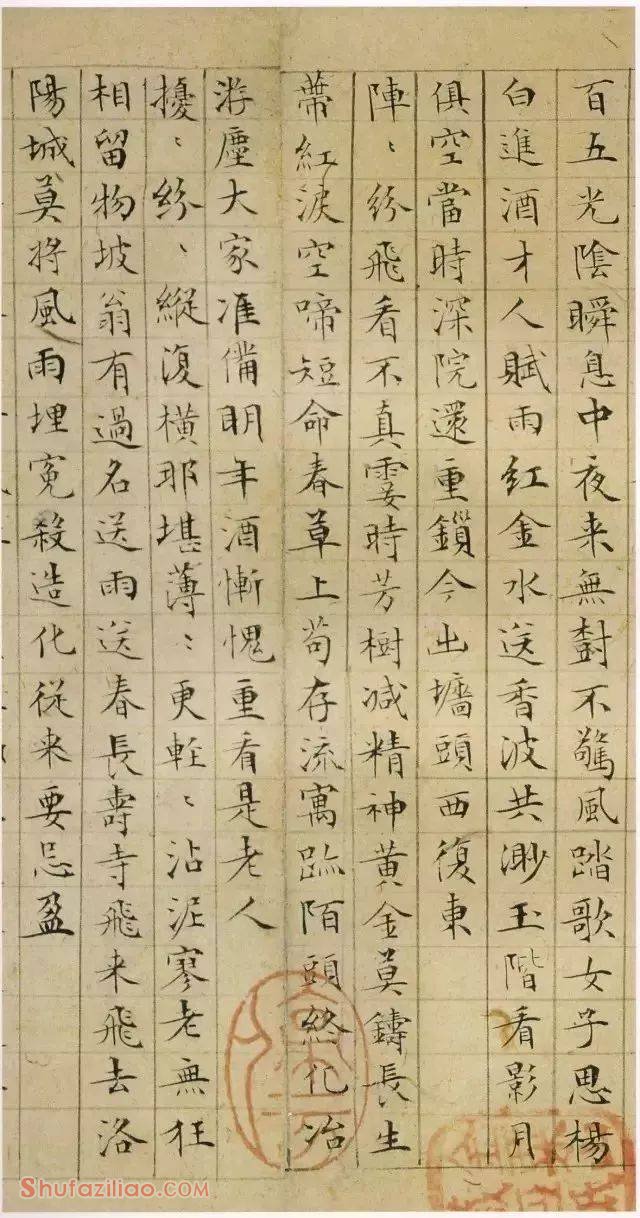 百五光陰瞬息中夜来無樹不驚風踏歌女子思楊
白進酒才人賦雨紅金水送香波共渺玉階看影月
俱空當時深院還重鎖今出墻頭西復東
陣〻紛飛看不真霎時芳樹减精神黄金莫鑄長生
蒂紅淚空啼短命春草上苟存流寓跡陌頭終化冶
游塵大家准備明年酒慚愧重看是老人
擾〻紛〻縱復横那堪薄〻更輕〻沾泥寥老無狂
相留物坡翁有過名送雨送春長壽寺飛来飛去洛
陽城莫將風雨埋冤殺造化從来要忌盈
Shufaziliao.COM